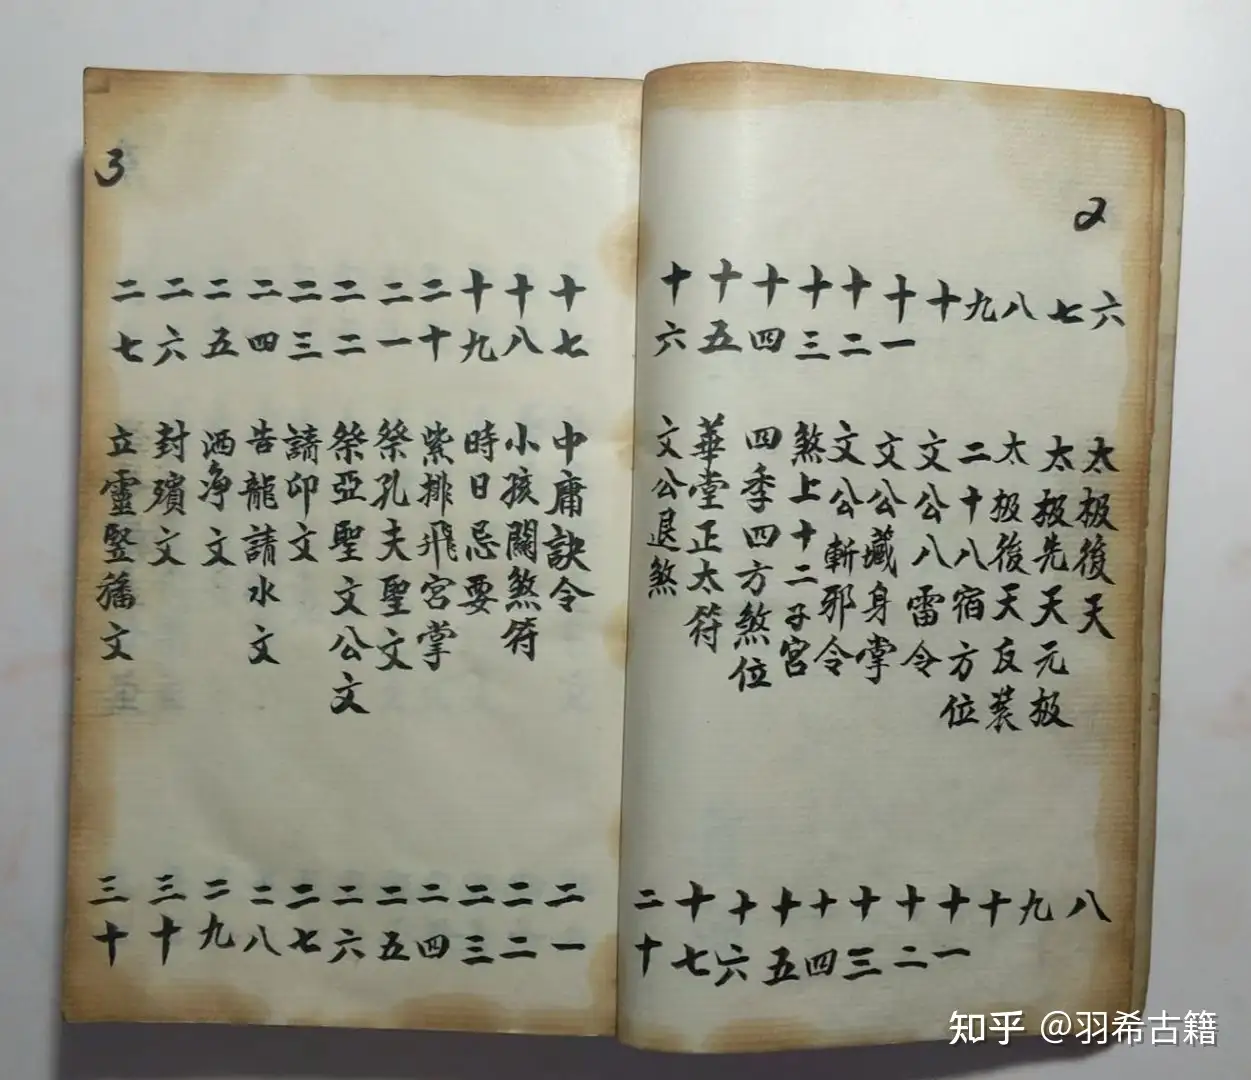 2
六 太极後天 八
七 太极先天元极 九
八 太极後天反装 十
九 二十八宿方位 十一
十 文公八雷令 十二
十一 文公藏身掌 十三
十二 文公斬邪令 十四
十三 煞上十二子宮 十五
十四 四季四方煞位 十六
十五 華堂正太符 十七
十六 文公退煞 二十
3
十七 中庸訣令 二一
十八 小孩關煞符 二二
十九 時日忌要 二三
二十 紫排飛宮掌 二四
二一 祭孔夫聖文 二五
二二 祭亞聖文公文 二六
二三 請印文 二七
二四 告龍請水文 二八
二五 洒净文 二九
二六 封殯文 三十
二七 立靈竪旛文 三十
知乎 @羽希古籍